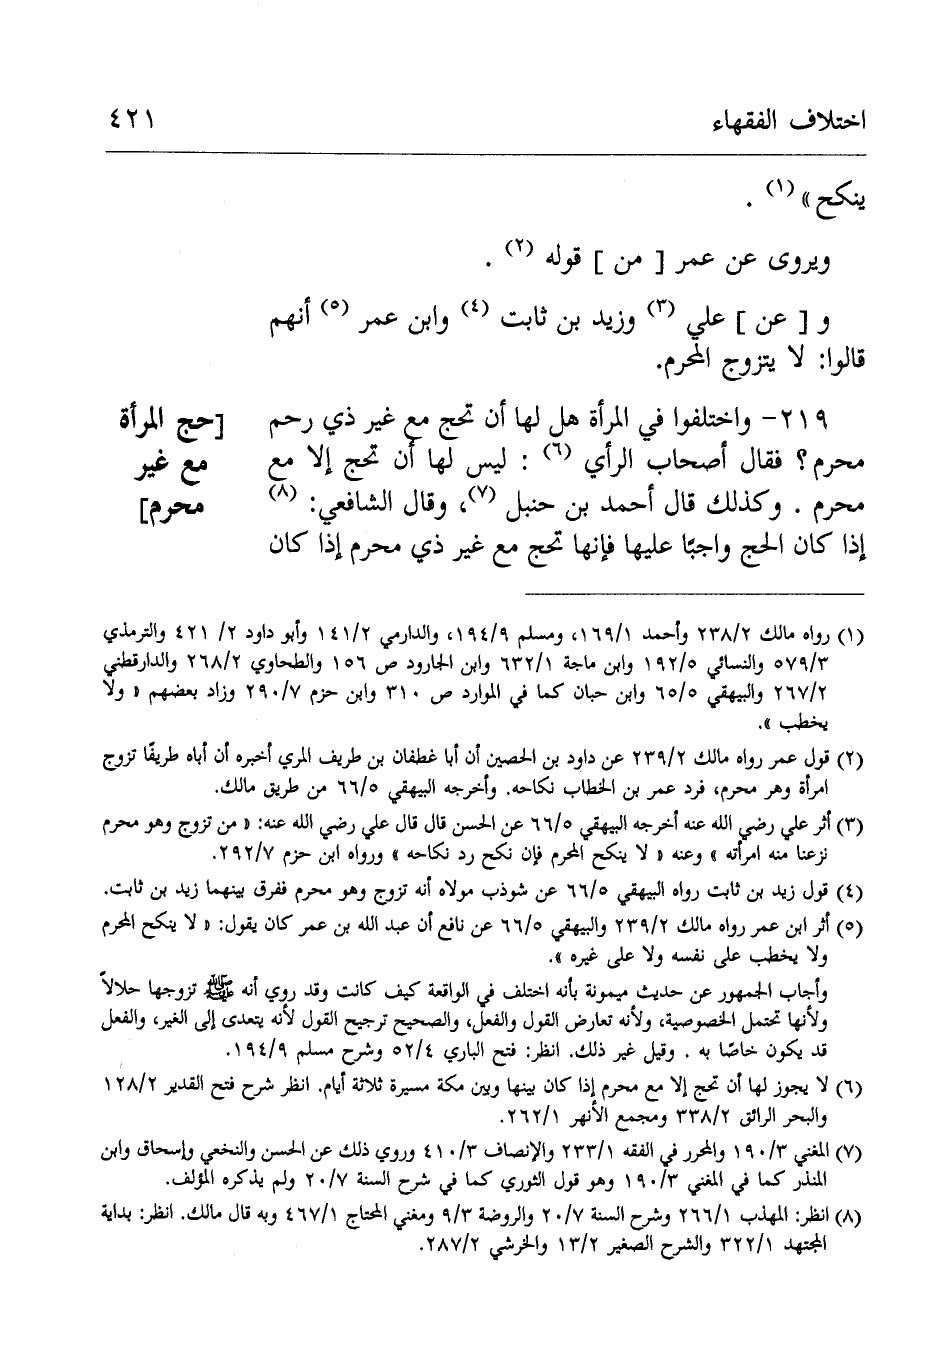 اختلاف الفقهاء
٤٢١
ينكح» (١) .
ويروى عن عمر [ من ] قوله (٢) .
و [ عن ] علي (٣) وزيد بن ثابت (٤) وابن عمر (٥) أنهم
قالوا: لا يتزوج المحرم.
٢١٩- واختلفوا في المرأة هل لها أن تحج مع غير ذي رحم
محرم؟ فقال أصحاب الرأي (٦) : ليس لها أن تحج إلا مع
محرم . وكذلك قال أحمد بن حنبل (٧)، وقال الشافعي: (٨)
إذا كان الحج واجبًا عليها فإنها تحج مع غير ذي محرم إذا كان
[حج المرأة
مع غير
محرم]
(١) رواه مالك ٢٣٨/٢ وأحمد ١٦٩/١، ومسلم ١٩٤/٩، والدارمي ١٤١/٢ وأبو داود ٢/ ٤٢١ والترمذي
٥٧٩/٣ والنسائي ١٩٢/٥ وابن ماجة ٦٣٢/١ وابن الجارود ص ١٥٦ والطحاوي ٢٦٨/٢ والدارقطني
٢٦٧/٢ والبيهقي ٦٥/٥ وابن حبان كما في الموارد ص ٣١٠ وابن حزم ٢٩٠/٧ وزاد بعضهم « ولا
يخطب ».
(٢) قول عمر رواه مالك ٢٣٩/٢ عن داود بن الحصين أن أبا غطفان بن طريف المري أخبره أن أباه طريفًا تزوج
امرأة وهر محرم، فرد عمر بن الخطاب نكاحه. وأخرجه البيهقي ٦٦/٥ من طريق مالك.
(٣) أثر علي رضي الله عنه أخرجه البيهقي ٦٦/٥ عن الحسن قال قال علي رضي الله عنه: « من تزوج وهو محرم
نزعنا منه امرأته » وعنه « لا ينكح المحرم فإن نكح رد نكاحه » ورواه ابن حزم ٢٩٢/٧.
(٤) قول زيد بن ثابت رواه البيهقي ٦٦/٥ عن شوذب مولاه أنه تزوج وهو محرم ففرق بينهما زيد بن ثابت.
(٥) أثر ابن عمر رواه مالك ٢٣٩/٢ والبيهقي ٦٦/٥ عن نافع أن عبد الله بن عمر كان يقول: « لا ينكح المحرم
ولا يخطب على نفسه ولا على غيره ».
وأجاب الجمهور عن حديث ميمونة بأنه اختلف في الواقعة كيف كانت وقد روي أنه ﷺ تزوجها حلالاً
ولأنها تحتمل الخصوصية، ولأنه تعارض القول والفعل، والصحيح ترجيح القول لأنه يتعدى إلى الغير، والفعل
قد يكون خاصًا به . وقيل غير ذلك. انظر: فتح الباري ٥٢/٤ وشرح مسلم ١٩٤/٩.
(٦) لا يجوز لها أن تحج إلا مع محرم إذا كان بينها وبين مكة مسيرة ثلاثة أيام. انظر شرح فتح القدير ١٢٨/٢
والبحر الرائق ٣٣٨/٢ ومجمع الأنهر ٢٦٢/١.
(٧) المغني ١٩٠/٣ والمحرر في الفقه ٢٣٣/١ والإنصاف ٤١٠/٣ وروي ذلك عن الحسن والنخعي وإسحاق وابن
المنذر كما في المغني ١٩٠/٣ وهو قول الثوري كما في شرح السنة ٢٠/٧ ولم يذكره المؤلف.
(٨) انظر: المهذب ٢٦٦/١ وشرح السنة ٢٠/٧ والروضة ٩/٣ ومغني المحتاج ٤٦٧/١ وبه قال مالك. انظر: بداية
المجتهد ٣٢٢/١ والشرح الصغير ١٣/٢ والخرشي ٢٨٧/٢.